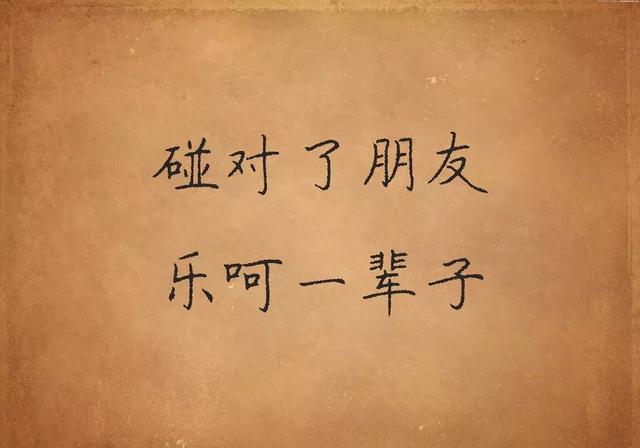 碰对了朋友
乐呵一辈子